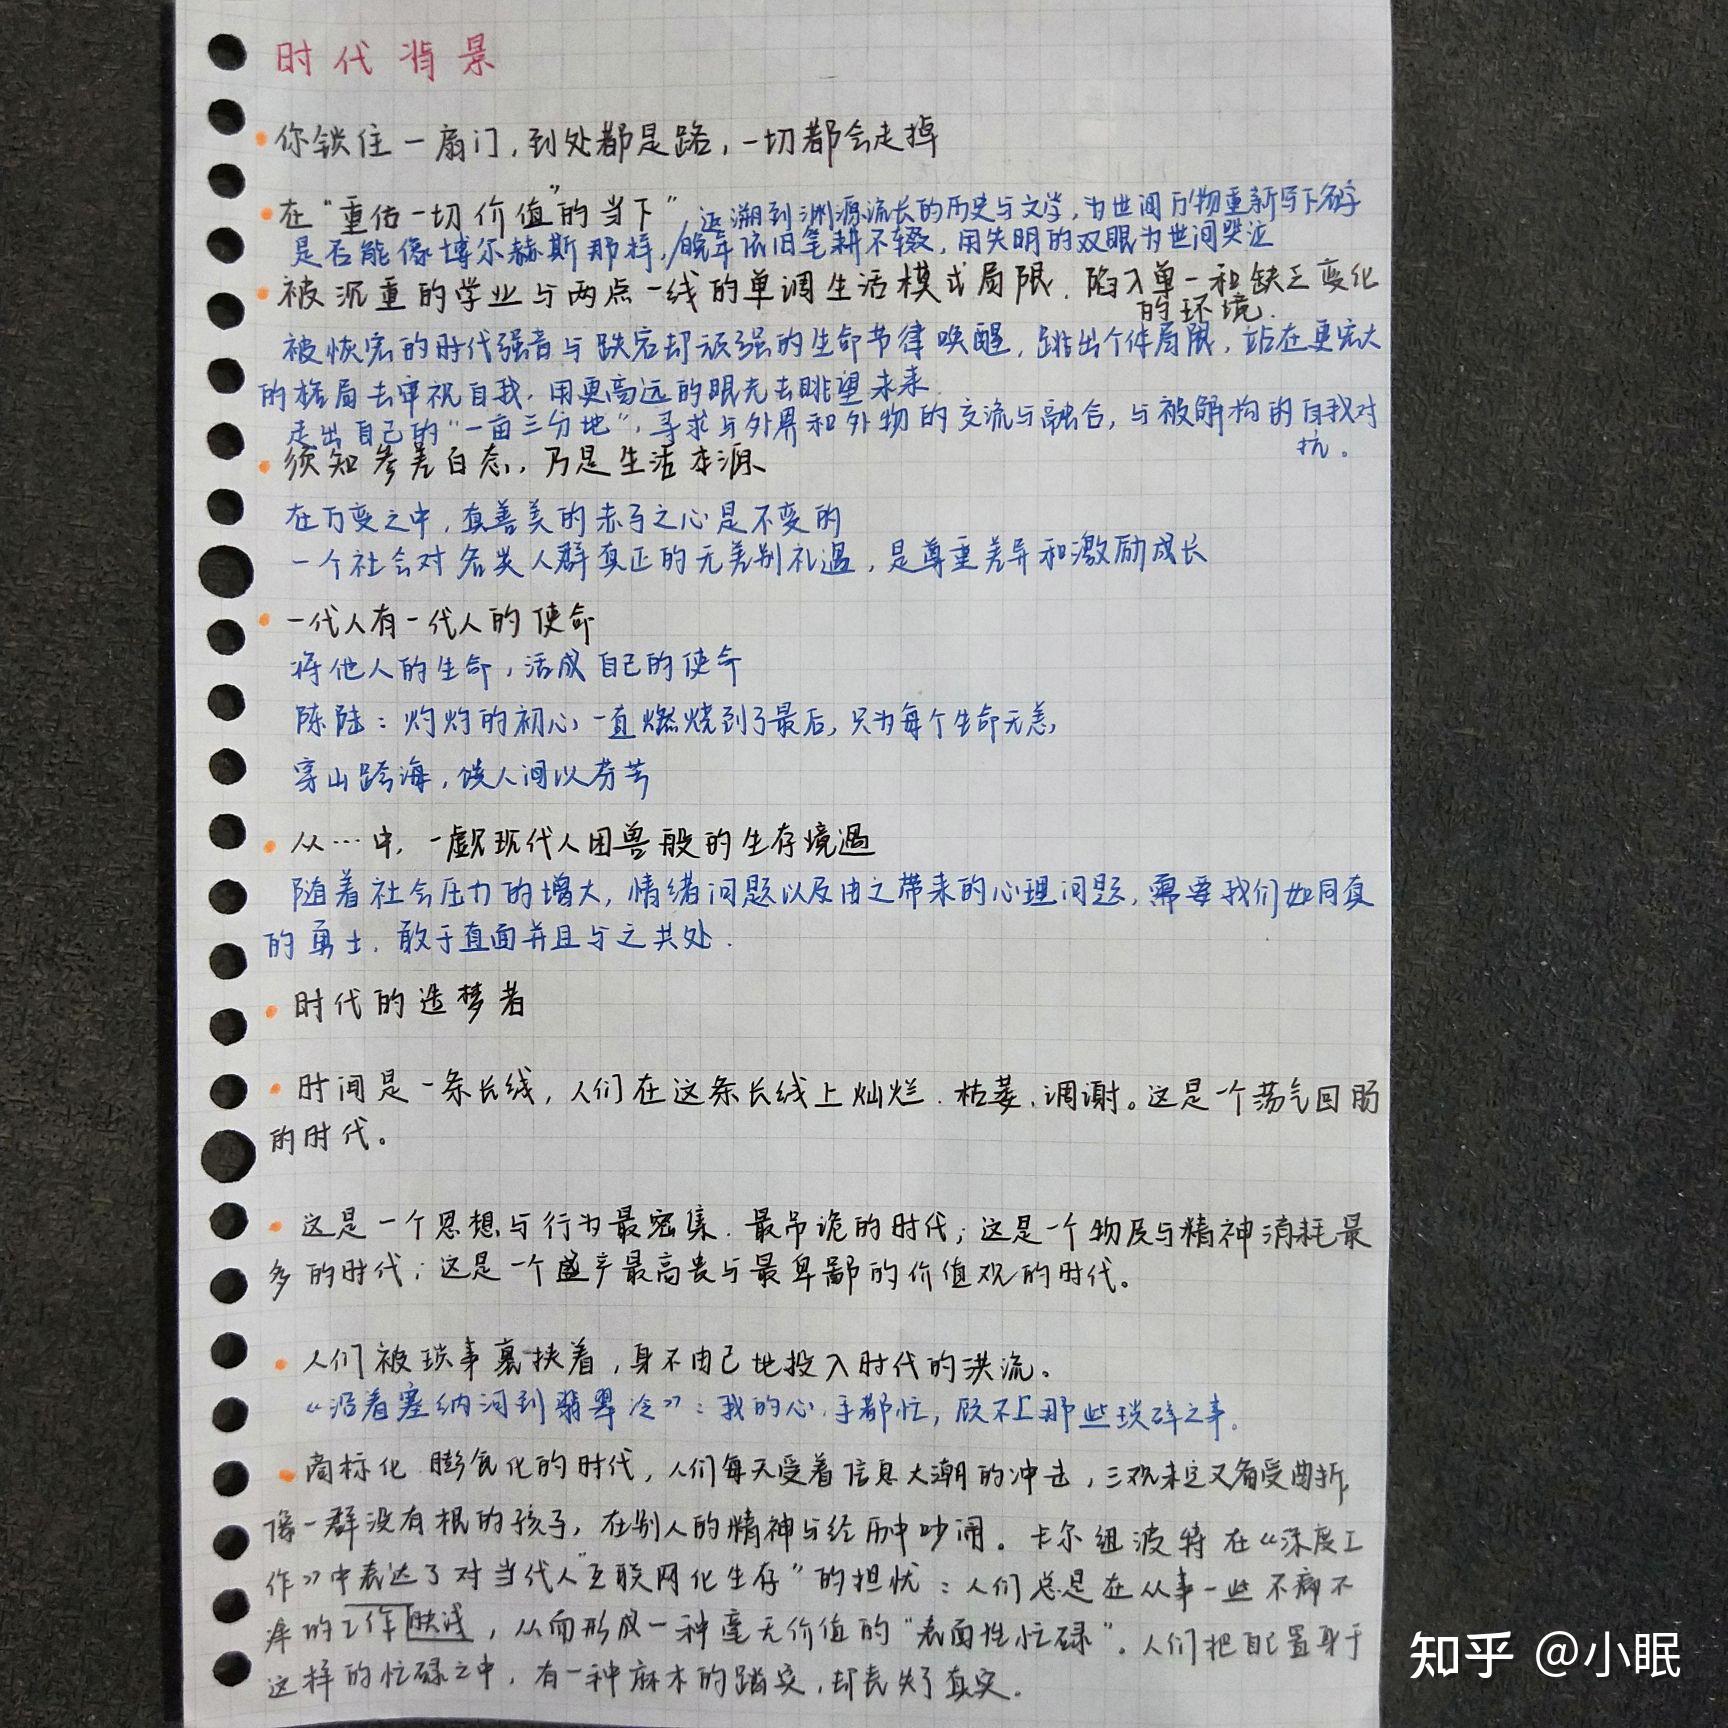 时代背景
你锁住一扇门，到处都是路，一切都会走掉
在“重估一切价值”的当下”，追溯到渊源流长的历史与文学，为世间万物重新写下名字
是否能像博尔赫斯那样，晚年依旧笔耕不辍，用失明的双眼为世间哭泣
被沉重的学业与两点一线的单调生活模式局限，陷入单一和缺乏变化
的环境.
被恢宏的时代强音与跌宕却顽强的生命节律唤醒，跳出个体局限，站在更宏大
的格局去审视自我，用更高远的眼光去眺望未来.
走出自己的“一亩三分地”，寻求与外界和外物的交流与融合，与被解构的自我对
抗。
须知参差百态，乃是生活本源
在万变之中，真善美的赤子之心是不变的
一个社会对各类人群真正的无差别礼遇，是尊重差异和激励成长
一代人有一代人的使命
将他人的生命，活成自己的使命
陈陆：灼灼的初心，一直燃烧到了最后，只为每个生命无恙，
穿山跨海，馈人间以芬芳
从…中，一窥现代人困兽般的生存境遇
随着社会压力的增大，情绪问题以及由之带来的心理问题，需要我们如同真
的勇士，敢于直面并且与之共处.
时代的造梦者
时间是一条长线，人们在这条长线上灿烂、枯萎、调谢。这是一个荡气回肠
的时代。
这是一个思想与行为最密集、最吊诡的时代；这是一个物质与精神消耗最
多的时代；这是一个盛产最高贵与最卑鄙的价值观的时代。
人们被琐事裹挟着，身不由己地投入时代的洪流。
《沿着塞纳河到翡翠冷》：我的心、手都忙，顾不上那些琐碎之事。
商标化、膨氛化的时代，人们每天受着信息大潮的冲击，三观未定又备受曲折，
像一群没有根的孩子，在别人的精神与经历中吵闹。卡尔纽波特在《深度工
作》中表达了对当代人“互联网化生存”的担忧：人们总是在从事一些不痛不
痒的工作肤浅，从而形成一种毫无价值的“表面性忙碌”。人们把自己置身于
这样的忙碌之中，有一种麻木的踏实，却丧失了真实.
知乎 @小眠